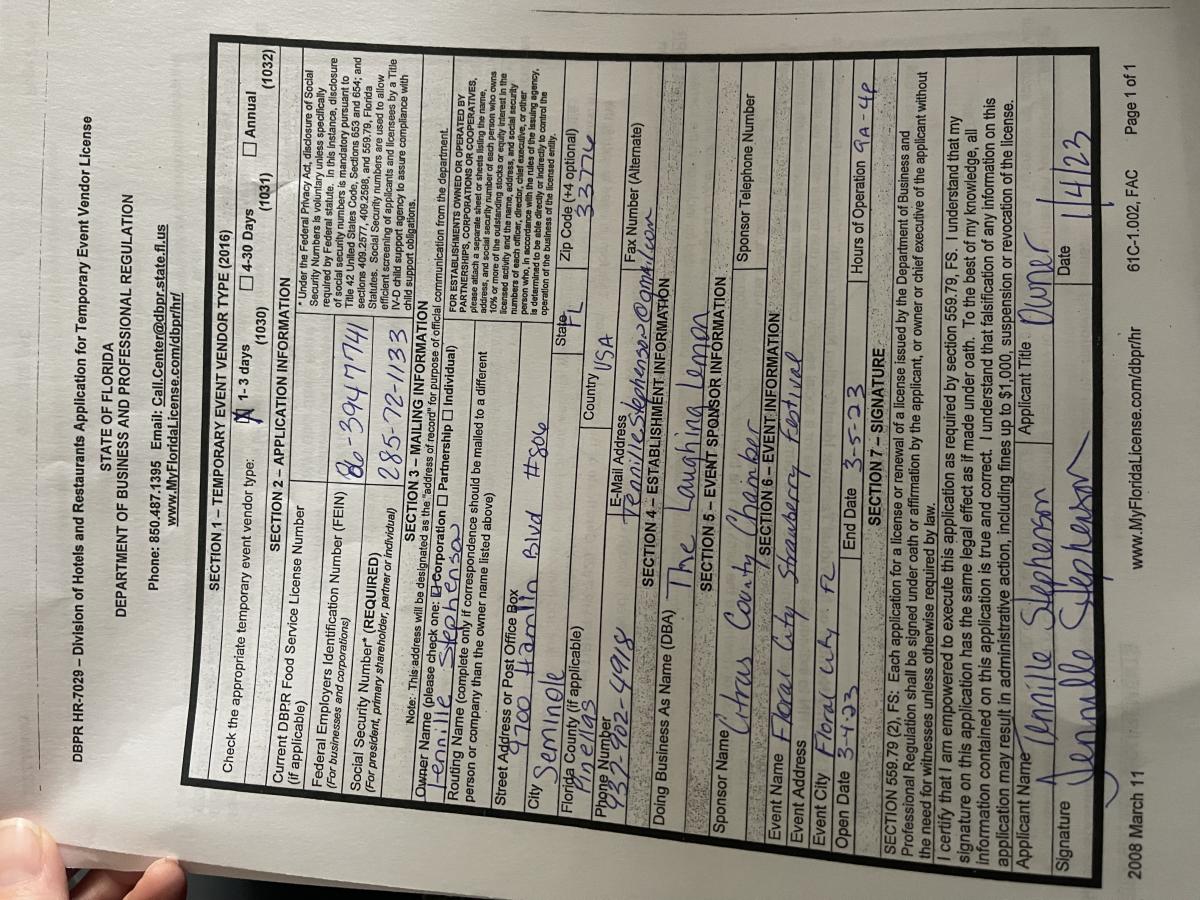 DBPR HR-7029 – Division of Hotels and Restaurants Application for Temporary Event Vendor License
STATE OF FLORIDA
DEPARTMENT OF BUSINESS AND PROFESSIONAL REGULATION
Phone: 850.487.1395 Email: Call.Center@dbpr.state.fl.us
www.MyFloridaLicense.com/dbpr/hr/
SECTION 1 – TEMPORARY EVENT VENDOR TYPE (2016)
Check the appropriate temporary event vendor type: X 1- 3 days (1030) ☐ 4-30 Days (1031) ☐ Annual (1032)
SECTION 2 – APPLICATION INFORMATION
Current DBPR Food Service License Number
(if applicable)
Federal Employers Identification Number (FEIN)
(For businesses and corporations)
86-3947741
Social Security Number* (REQUIRED)
(For president, primary shareholder, partner or individual)
285-72-1133
* Under the Federal Privacy Act, disclosure of Social
Security Numbers is voluntary unless specifically
required by Federal statute. In this instance, disclosure
of social security numbers is mandatory pursuant to
Title 42 United States Code, Sections 653 and 654; and
sections 409.2577, 409.2598, and 559.79, Florida
Statutes. Social Security numbers are used to allow
efficient screening of applicants and licensees by a Title
IV-D child support agency to assure compliance with
child support obligations.
SECTION 3 – MAILING INFORMATION
Note: This address will be designated as the "address of record" for purpose of official communication from the department.
Owner Name (please check one: ☑ Corporation ☐ Partnership ☐ Individual)
Tennille Stephenson
Routing Name (complete only if correspondence should be mailed to a different
person or company than the owner name listed above)
FOR ESTABLISHMENTS OWNED OR OPERATED BY
PARTNERSHIPS, CORPORATIONS OR COOPERATIVES,
please attach a separate sheet or sheets listing the name,
address, and social security number of each person who owns
10% or more of the outstanding stocks or equity interest in the
licensed activity and the name, address, and social security
numbers of each officer, director, chief executive, or other
person who, in accordance with the rules of the issuing agency,
is determined to be able directly or indirectly to control the
operation of the business of the licensed entity.
Street Address or Post Office Box
9700 Hamlin Blvd #806
City Seminole
State FL
Zip Code (+4 optional)
33776
Florida County (if applicable)
Pinellas
Country USA
Phone Number
937-902-4918
E-Mail Address
Tennillestephenson@gmail.com
Fax Number (Alternate)
SECTION 4 – ESTABLISHMENT INFORMATION
Doing Business As Name (DBA) The Laughing Lemon
SECTION 5 – EVENT SPONSOR INFORMATION
Sponsor Name Citrus County Chamber
Sponsor Telephone Number
SECTION 6 – EVENT INFORMATION
Event Name Floral City Strawberry Festival
Event Address
Event City Floral City FL
Open Date 3-4-23
End Date 3-5-23
Hours of Operation 9A-4P
SECTION 7 – SIGNATURE
SECTION 559.79 (2), FS: Each application for a license or renewal of a license issued by the Department of Business and
Professional Regulation shall be signed under oath or affirmation by the applicant, or owner or chief executive of the applicant without
the need for witnesses unless otherwise required by law.
I certify that I am empowered to execute this application as required by section 559.79, FS. I understand that my
signature on this application has the same legal effect as if made under oath. To the best of my knowledge, all
information contained on this application is true and correct. I understand that falsification of any information on this
application may result in administrative action, including fines up to $1,000, suspension or revocation of the license.
Applicant Name Tennille Stephenson
Applicant Title Owner
Signature Tennille Stephenson
Date 1/4/23
2008 March 11
www.MyFloridaLicense.com/dbpr/hr
61C-1.002, FAC
Page 1 of 1